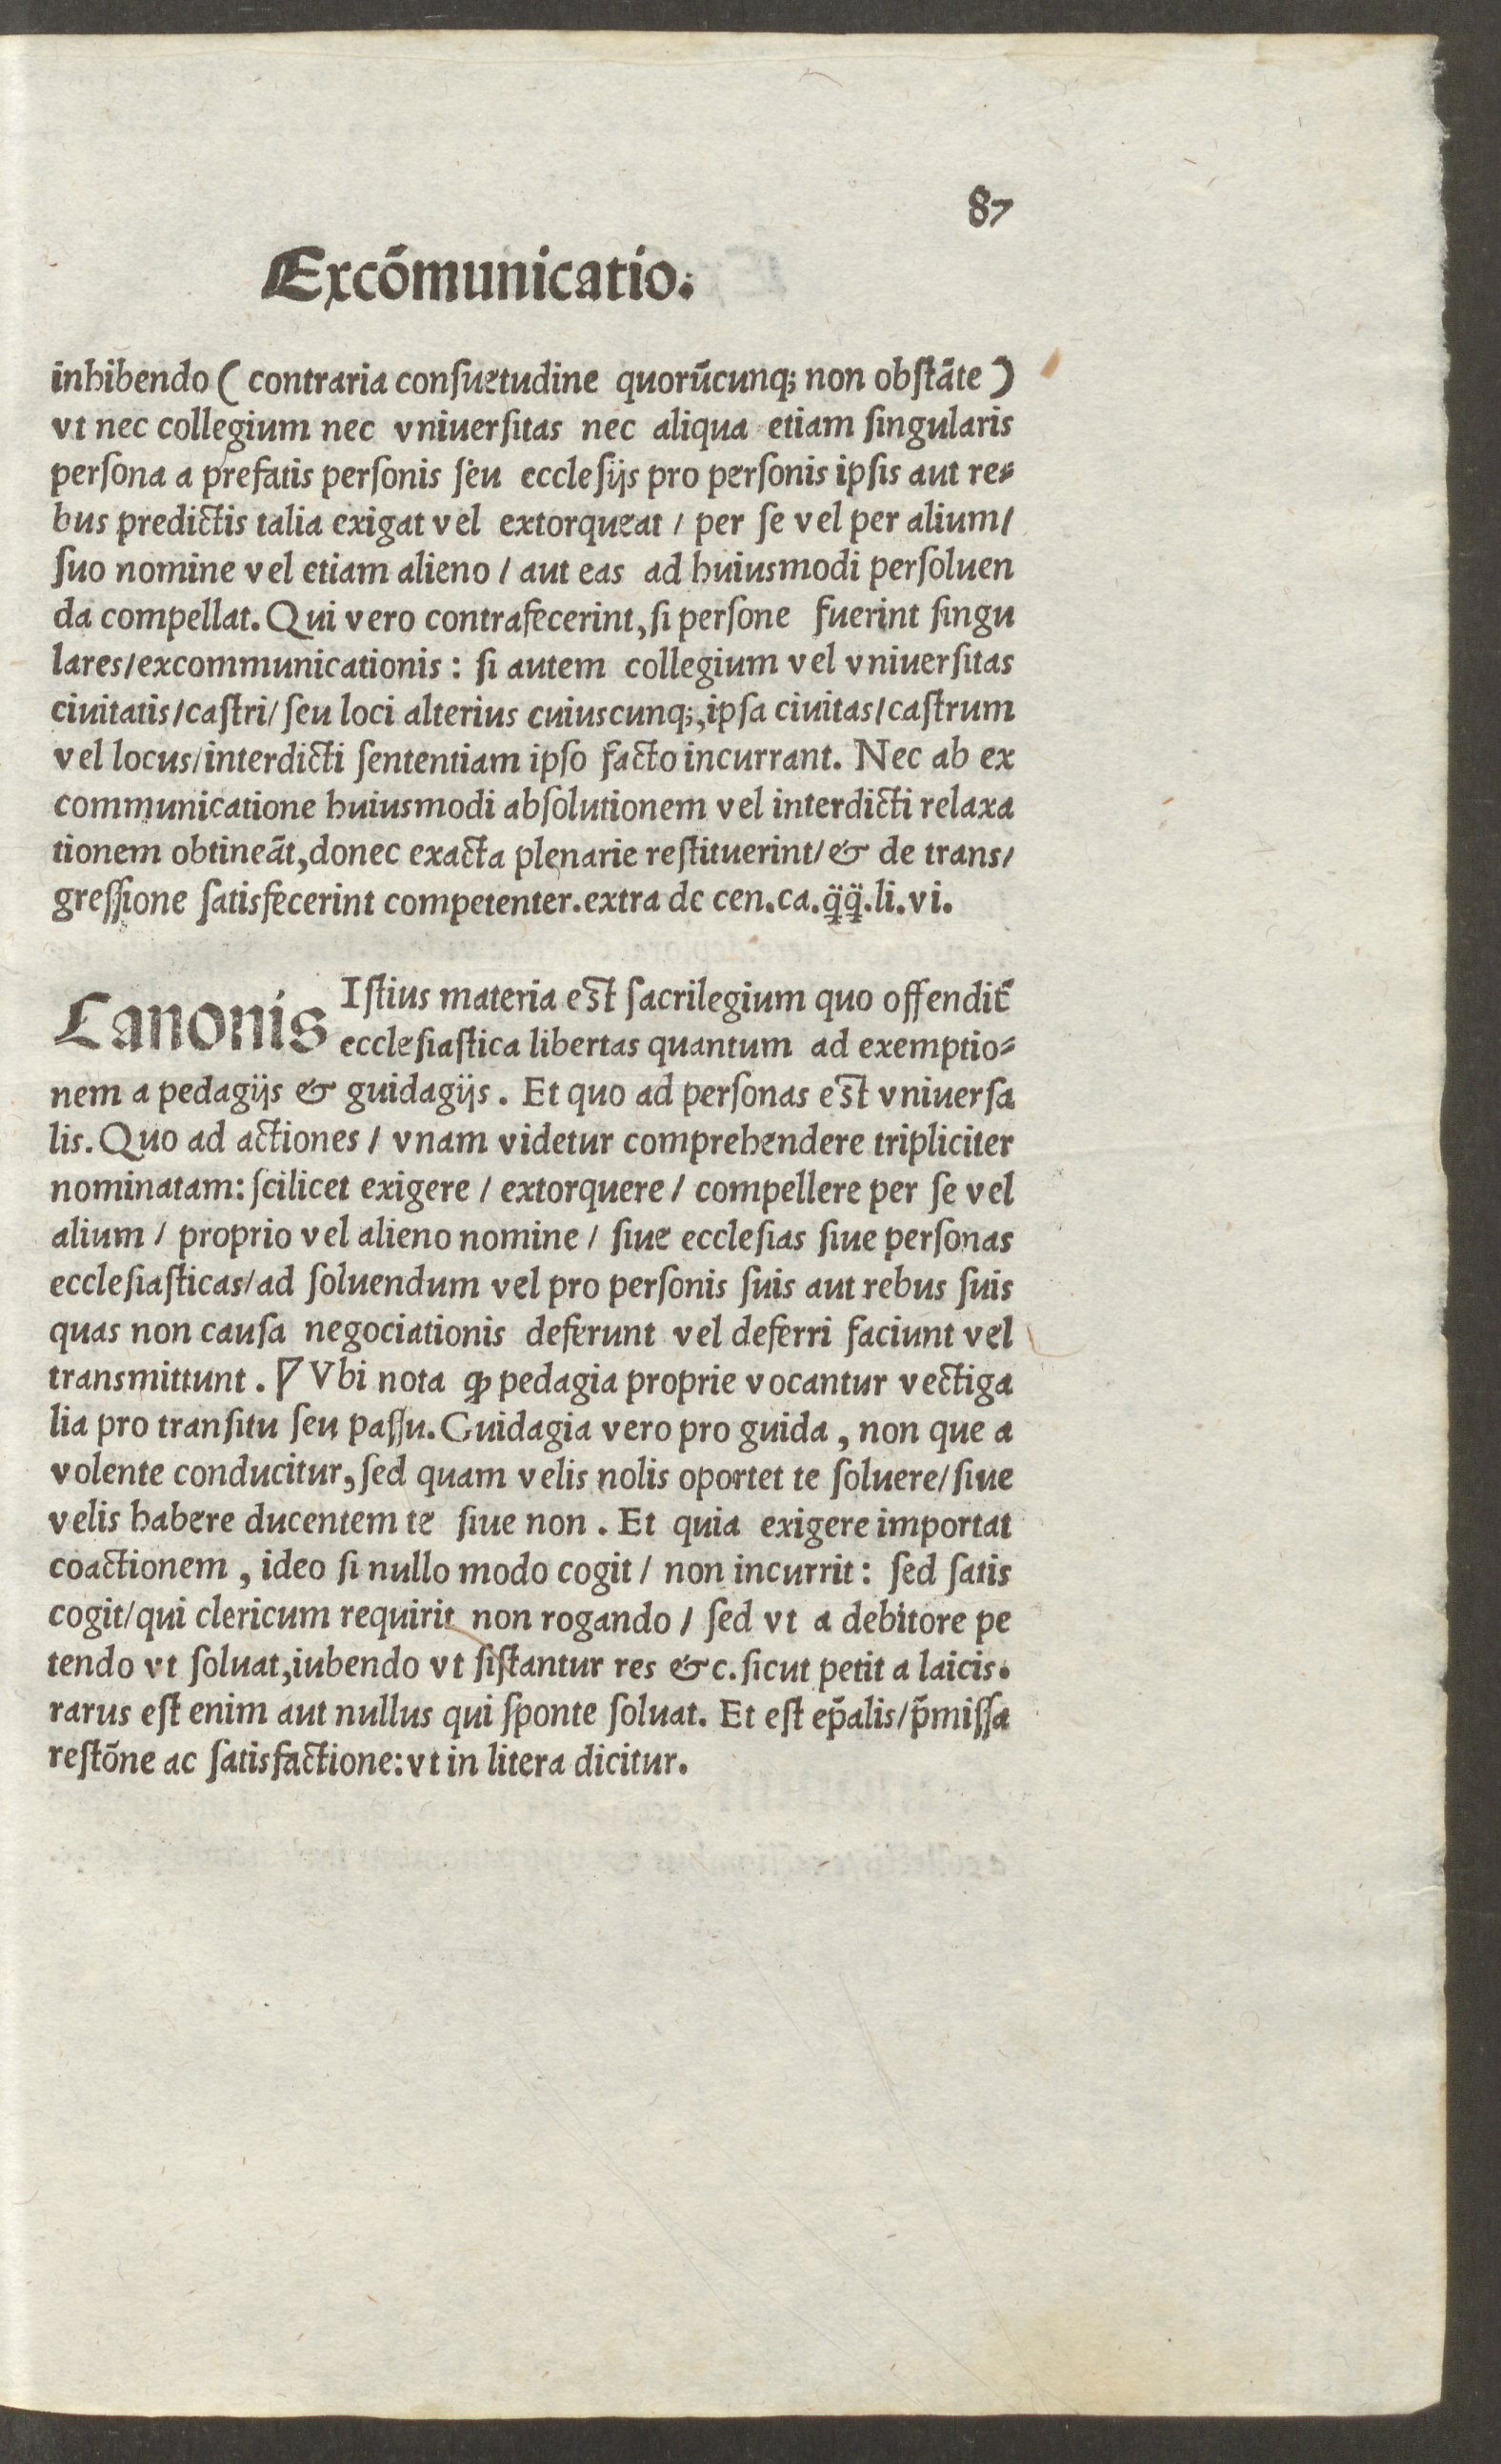 87
Excõmunicatio.
inhibendo ( contraria conſuetudine quorũcunq; non obſtãte )
vt nec collegium nec vniuerſitas nec aliqua etiam ſingularis
perſona a prefatis perſonis ſeu eccleſijs pro perſonis ipſis aut re⸗
bus predictis talia exigat vel extorqueat / per ſe vel per alium/
ſuo nomine vel etiam alieno / aut eas ad huiusmodi perſoluen
da compellat. Qui vero contrafecerint, ſi perſone fuerint ſingu
lares/excommunicationis : ſi autem collegium vel vniuerſitas
ciuitatis/caſtri/ ſeu loci alterius cuiuscunq;, ipſa ciuitas/caſtrum
vel locus/interdicti ſententiam ipſo facto incurrant. Nec ab ex
communicatione huiusmodi abſolutionem vel interdicti relaxa
tionem obtineãt, donec exacta plenarie reſtituerint/& de trans/
greſſione ſatisfecerint competenter.extra de cen.ca.q̈q̈.li.vi.
Canonis Iſtius materia eſt ſacrilegium quo offendit̃
eccleſiaſtica libertas quantum ad exemptio⸗
nem a pedagijs & guidagijs . Et quo ad perſonas eſt vniuerſa
lis. Quo ad actiones / vnam videtur comprehendere tripliciter
nominatam: ſcilicet exigere / extorquere / compellere per ſe vel
alium / proprio vel alieno nomine / ſiue eccleſias ſiue perſonas
eccleſiaſticas/ad ſoluendum vel pro perſonis ſuis aut rebus ſuis
quas non cauſa negociationis deferunt vel deferri faciunt vel
transmittunt . ¶ Vbi nota ꝙ pedagia proprie vocantur vectiga
lia pro tranſitu ſeu paſſu. Guidagia vero pro guida , non que a
volente conducitur, ſed quam velis nolis oportet te ſoluere/ſiue
velis habere ducentem te ſiue non . Et quia exigere importat
coactionem , ideo ſi nullo modo cogit / non incurrit : ſed ſatis
cogit/qui clericum requirit non rogando / ſed vt a debitore pe
tendo vt ſoluat, iubendo vt ſiſtantur res &c. ſicut petit a laicis.
rarus eſt enim aut nullus qui ſponte ſoluat. Et eſt ep̃alis/p̃miſſa
reſtõne ac ſatisfactione: vt in litera dicitur.